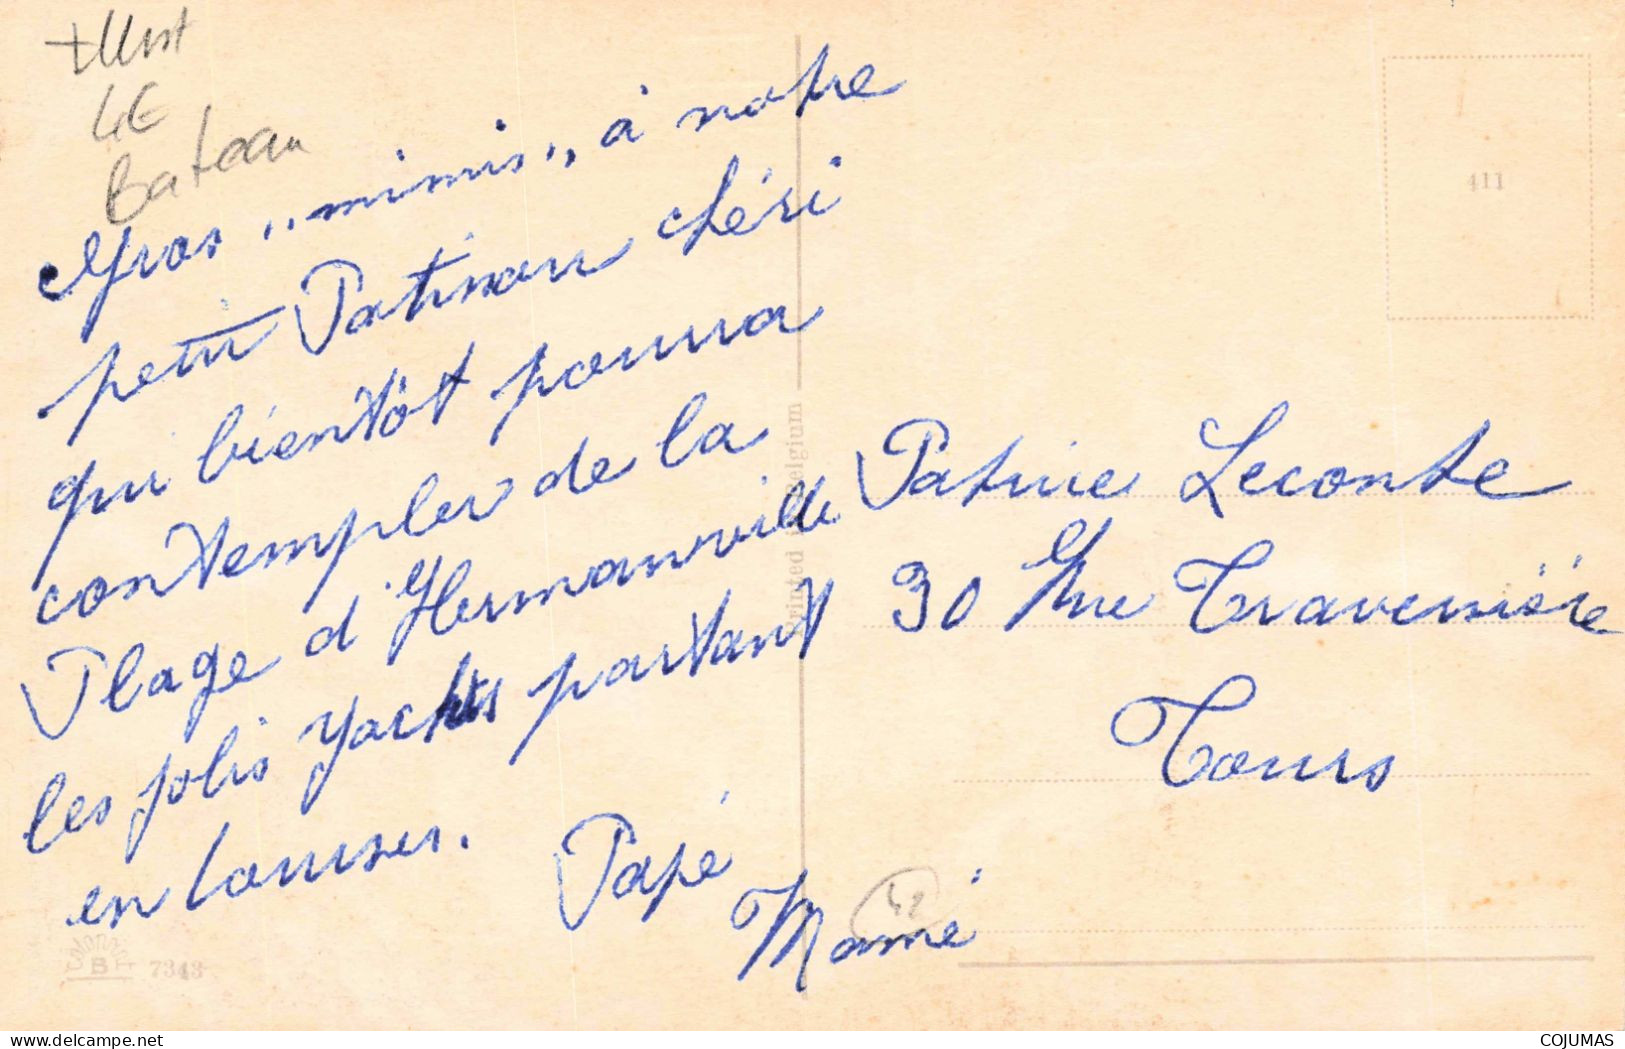 Illust
4€
Bateau
Gros „mimis„ à notre
petit Patinou chéri
qui bientôt pourra
contempler de la
Plage d'Hermanville
les jolis yachts partant
en courses.
Papé
Mamé
Patrice Leconte
30 Rue Traversière
Tours
411
Printed in Belgium
Colorprint
B
7343
42
COJUMAS
delcampe.net